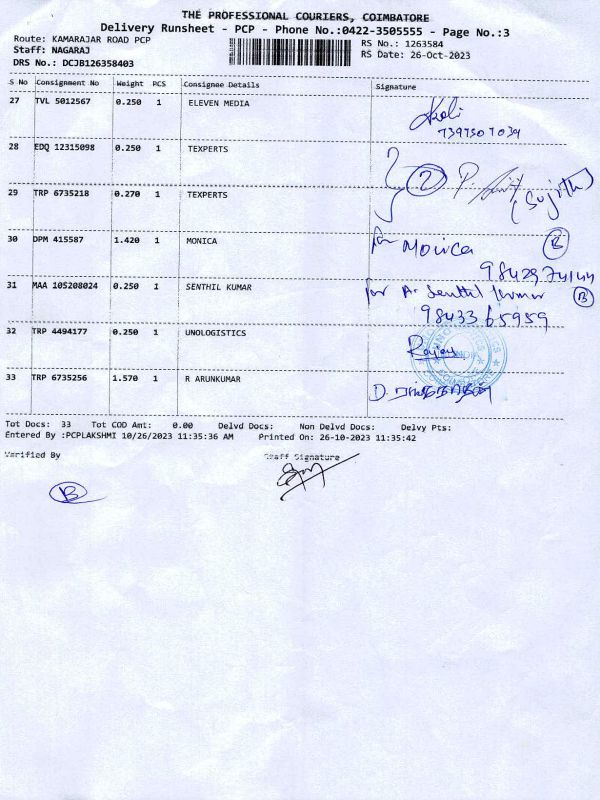 THE PROFESSIONAL COURIERS, COIMBATORE
Delivery Runsheet - PCP - Phone No.:0422-3505555 - Page No.:3
Route: KAMARAJAR ROAD PCP
RS No.: 1263584
Staff: NAGARAJ
RS Date: 26-Oct-2023
DRS No.: DCJB126358403
S No Consignment No Weight PCS Consignee Details Signature
27 TVL 5012567 0.250 1 ELEVEN MEDIA
7397507039
28 EDQ 12315098 0.250 1 TEXPERTS
2 (Sujith)
29 TRP 6735218 0.270 1 TEXPERTS
30 DPM 415587 1.420 1 MONICA for Monica B
9842974144
31 MAA 105208024 0.250 1 SENTHIL KUMAR for A. Senthil kumar B
9843365959
32 TRP 4494177 0.250 1 UNOLOGISTICS
33 TRP 6735256 1.570 1 R ARUNKUMAR
Tot Docs: 33 Tot COD Amt: 0.00 Delvd Docs: Non Delvd Docs: Delvy Pts:
Entered By :PCPLAKSHMI 10/26/2023 11:35:36 AM Printed On: 26-10-2023 11:35:42
Verified By Staff Signature
B